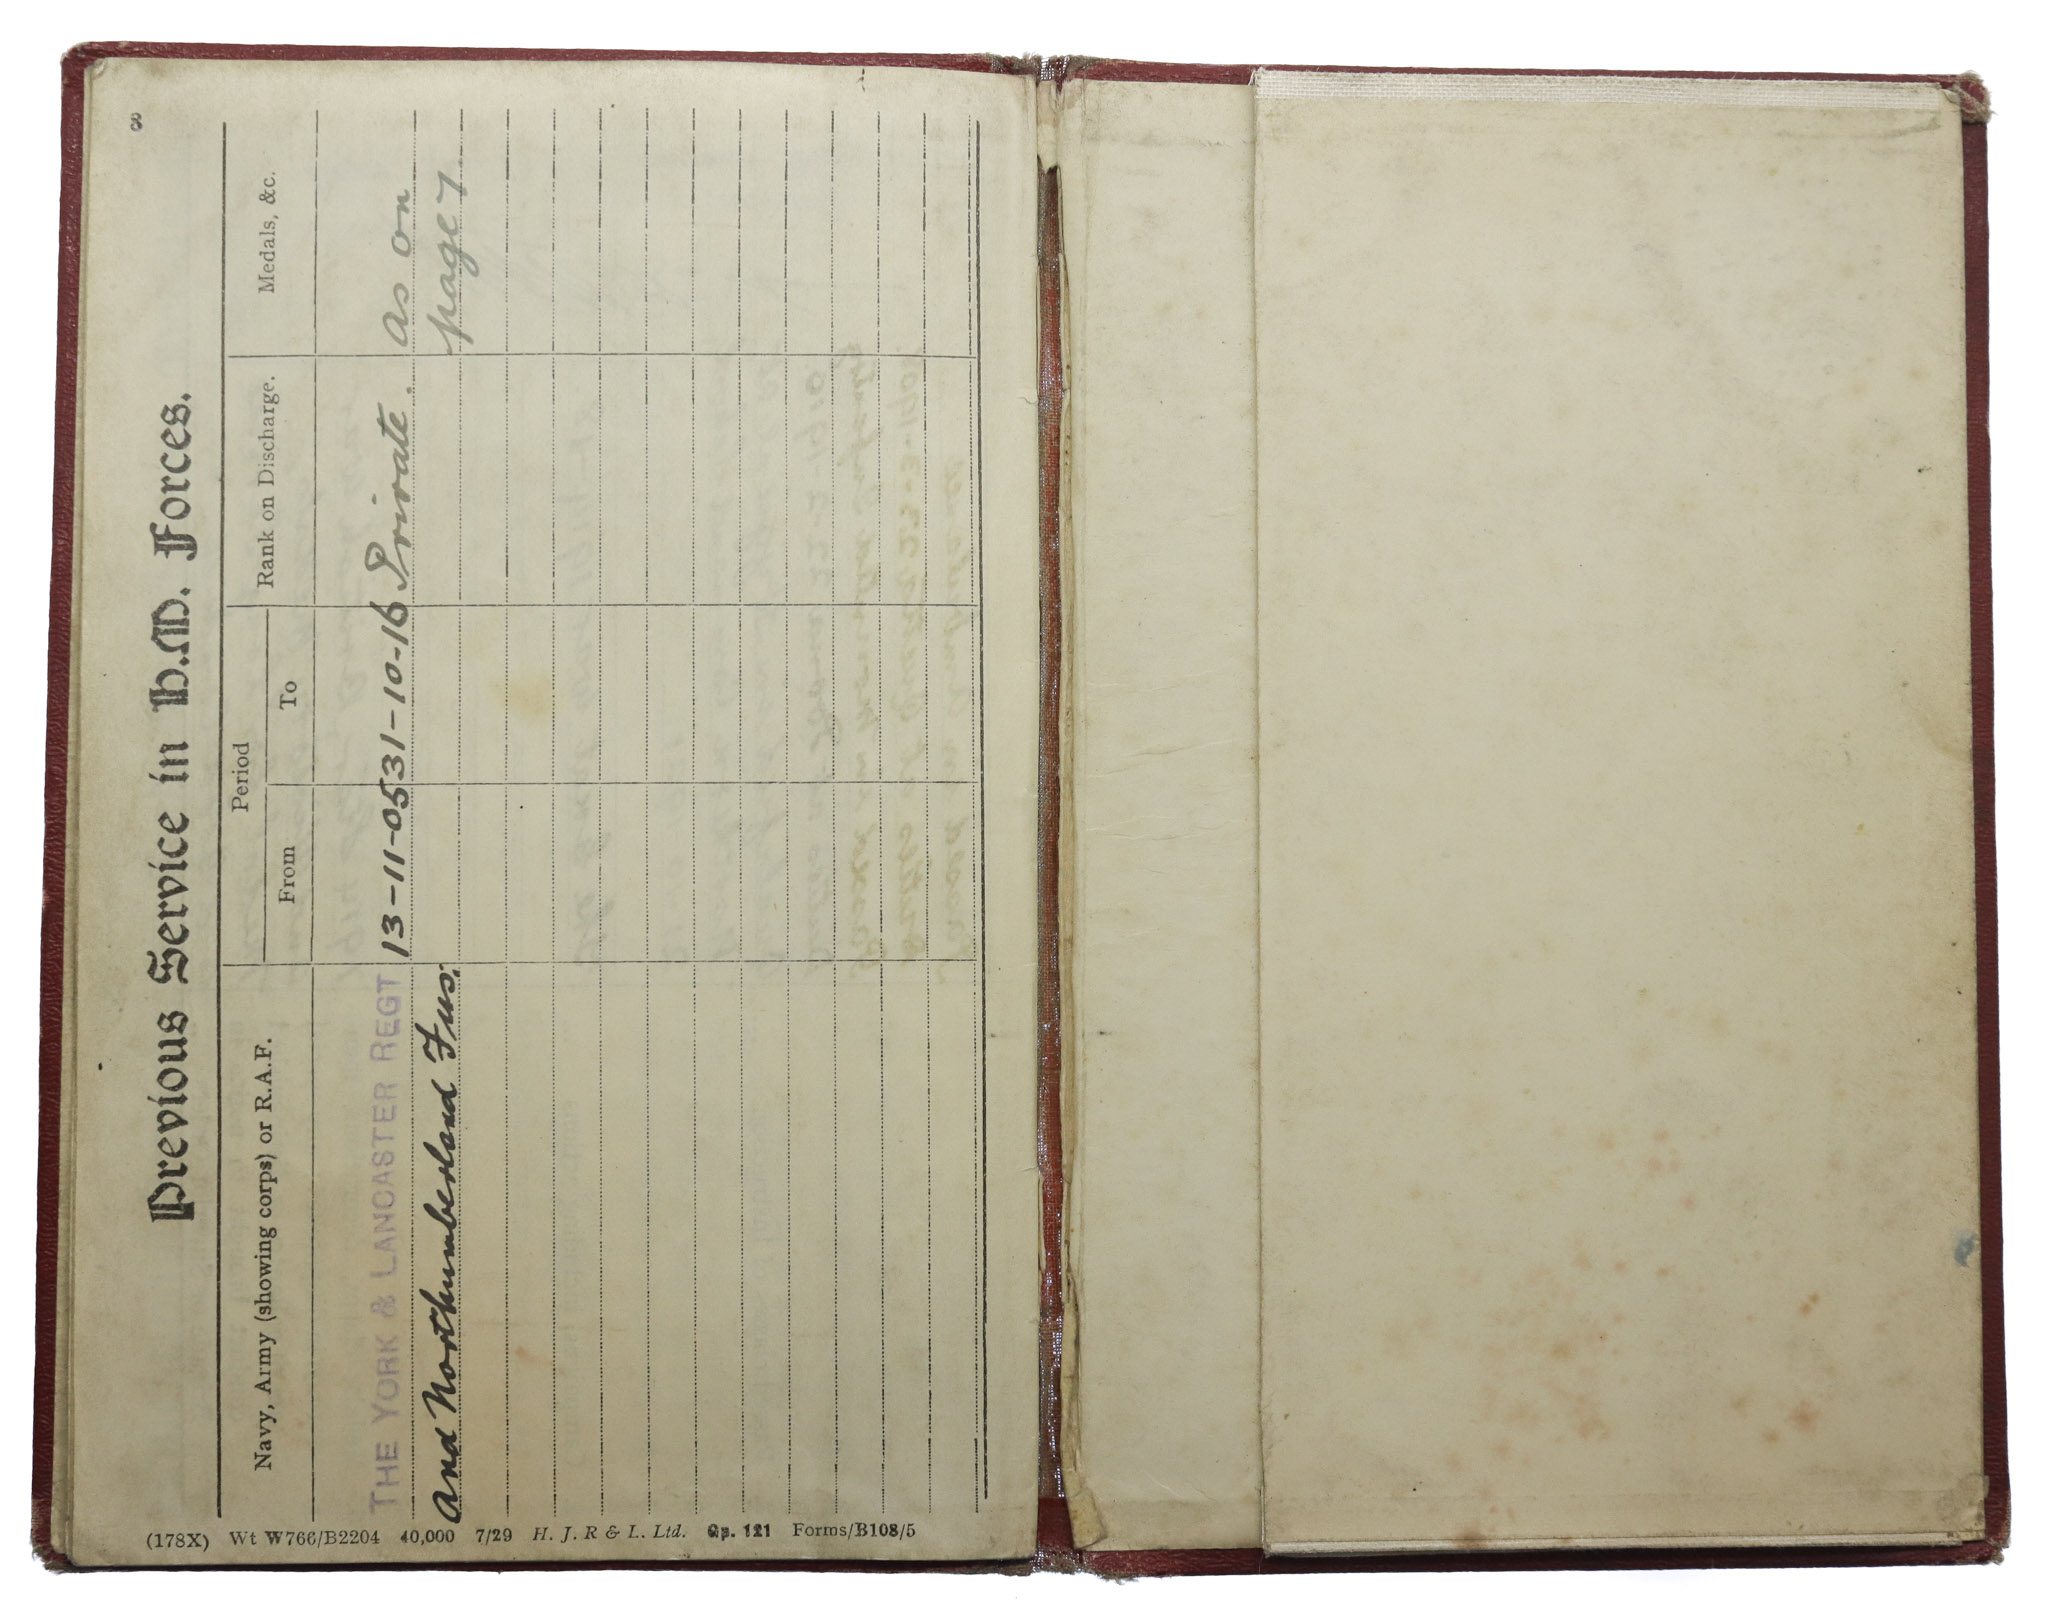 8
Previous Service in H.M. Forces.
Navy, Army (showing corps) or R.A.F.
Period
From
To
Rank on Discharge.
Medals, &c.
THE YORK & LANCASTER REGT 13-11-05 31-10-16 Private. as on
and Northumberland Fus. page 7.
(178X) Wt W766/B2204 40,000 7/29 H. J. R & L. Ltd. Gp. 121 Forms/B108/5